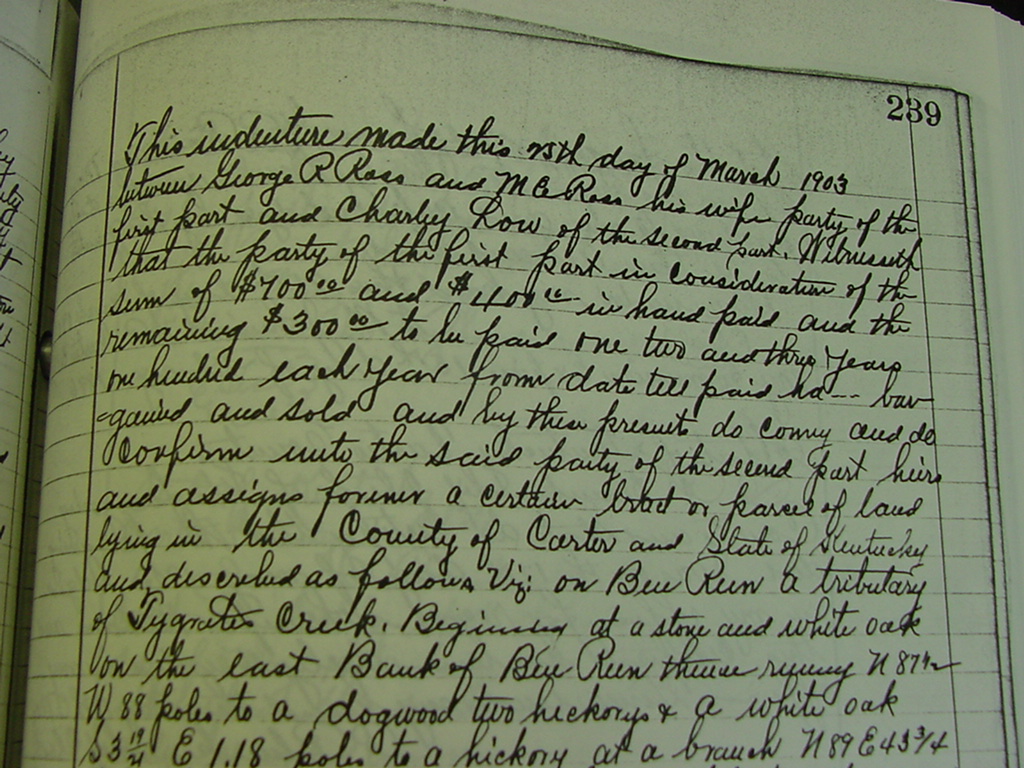 239
This indenture made this 25th day of March 1903
between George R Ross and M E Ross his wife party of the
first part and Charley Low of the second part. Witnesseth
that the party of the first part in consideration of the
sum of $700.00 and $400.00 in hand paid and the
remaining $300.00 to be paid one two and three years
one hundred each year from date till paid ha--- bar
-gained and sold and by these presents do convey and do
Confirm unto the said party of the second part heirs
and assigns forever a certain tract or parcel of land
lying in the County of Carter and State of Kentucky
and described as follows Viz: on Bee Run a tributary
of Tygrates Creek. Beginning at a stone and white oak
on the east Bank of Bee Run thence runing N 87 1/2
W 88 poles to a dogwood two hickorys & a white oak
S 3 E 1.18 poles to a hickory at a branch N 89 E 43 3/4